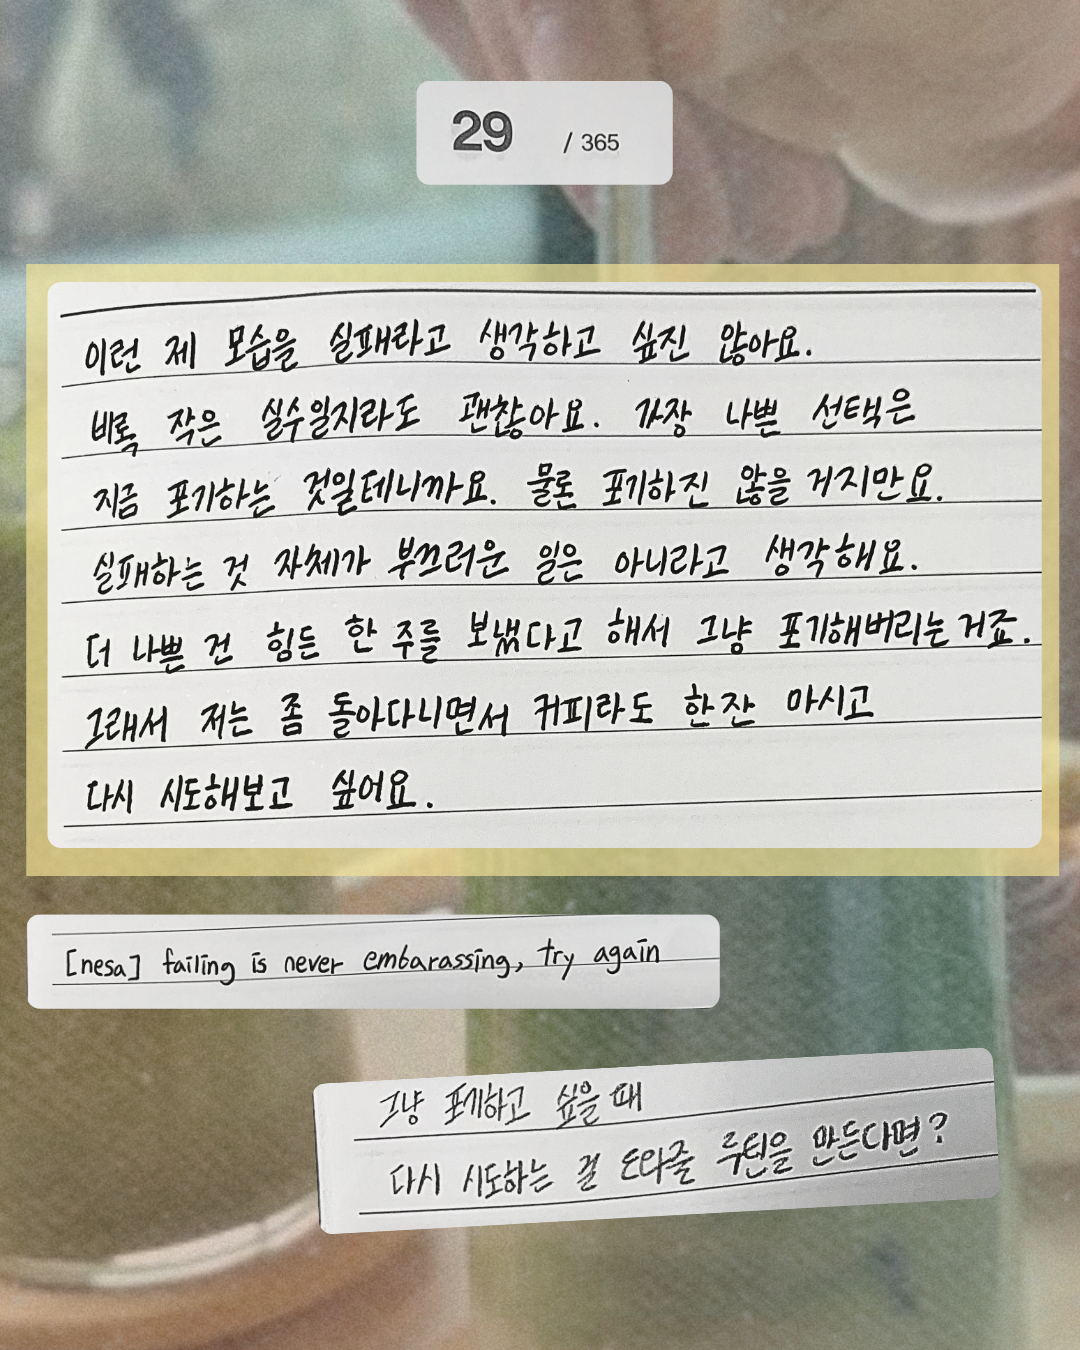 29 / 365
이런 제 모습을 실패라고 생각하고 싶진 않아요.
비록 작은 실수일지라도 괜찮아요. 가장 나쁜 선택은
지금 포기하는 것일테니까요. 물론 포기하진 않을 거지만요.
실패하는 것 자체가 부끄러운 일은 아니라고 생각해요.
더 나쁜 건 힘든 한 주를 보냈다고 해서 그냥 포기해버리는거죠.
그래서 저는 좀 돌아다니면서 커피라도 한잔 마시고
다시 시도해보고 싶어요.
[nesa] failing is never embarassing, try again
그냥 포기하고 싶을 때
다시 시도하는 걸 도와줄 루틴을 만든다면?